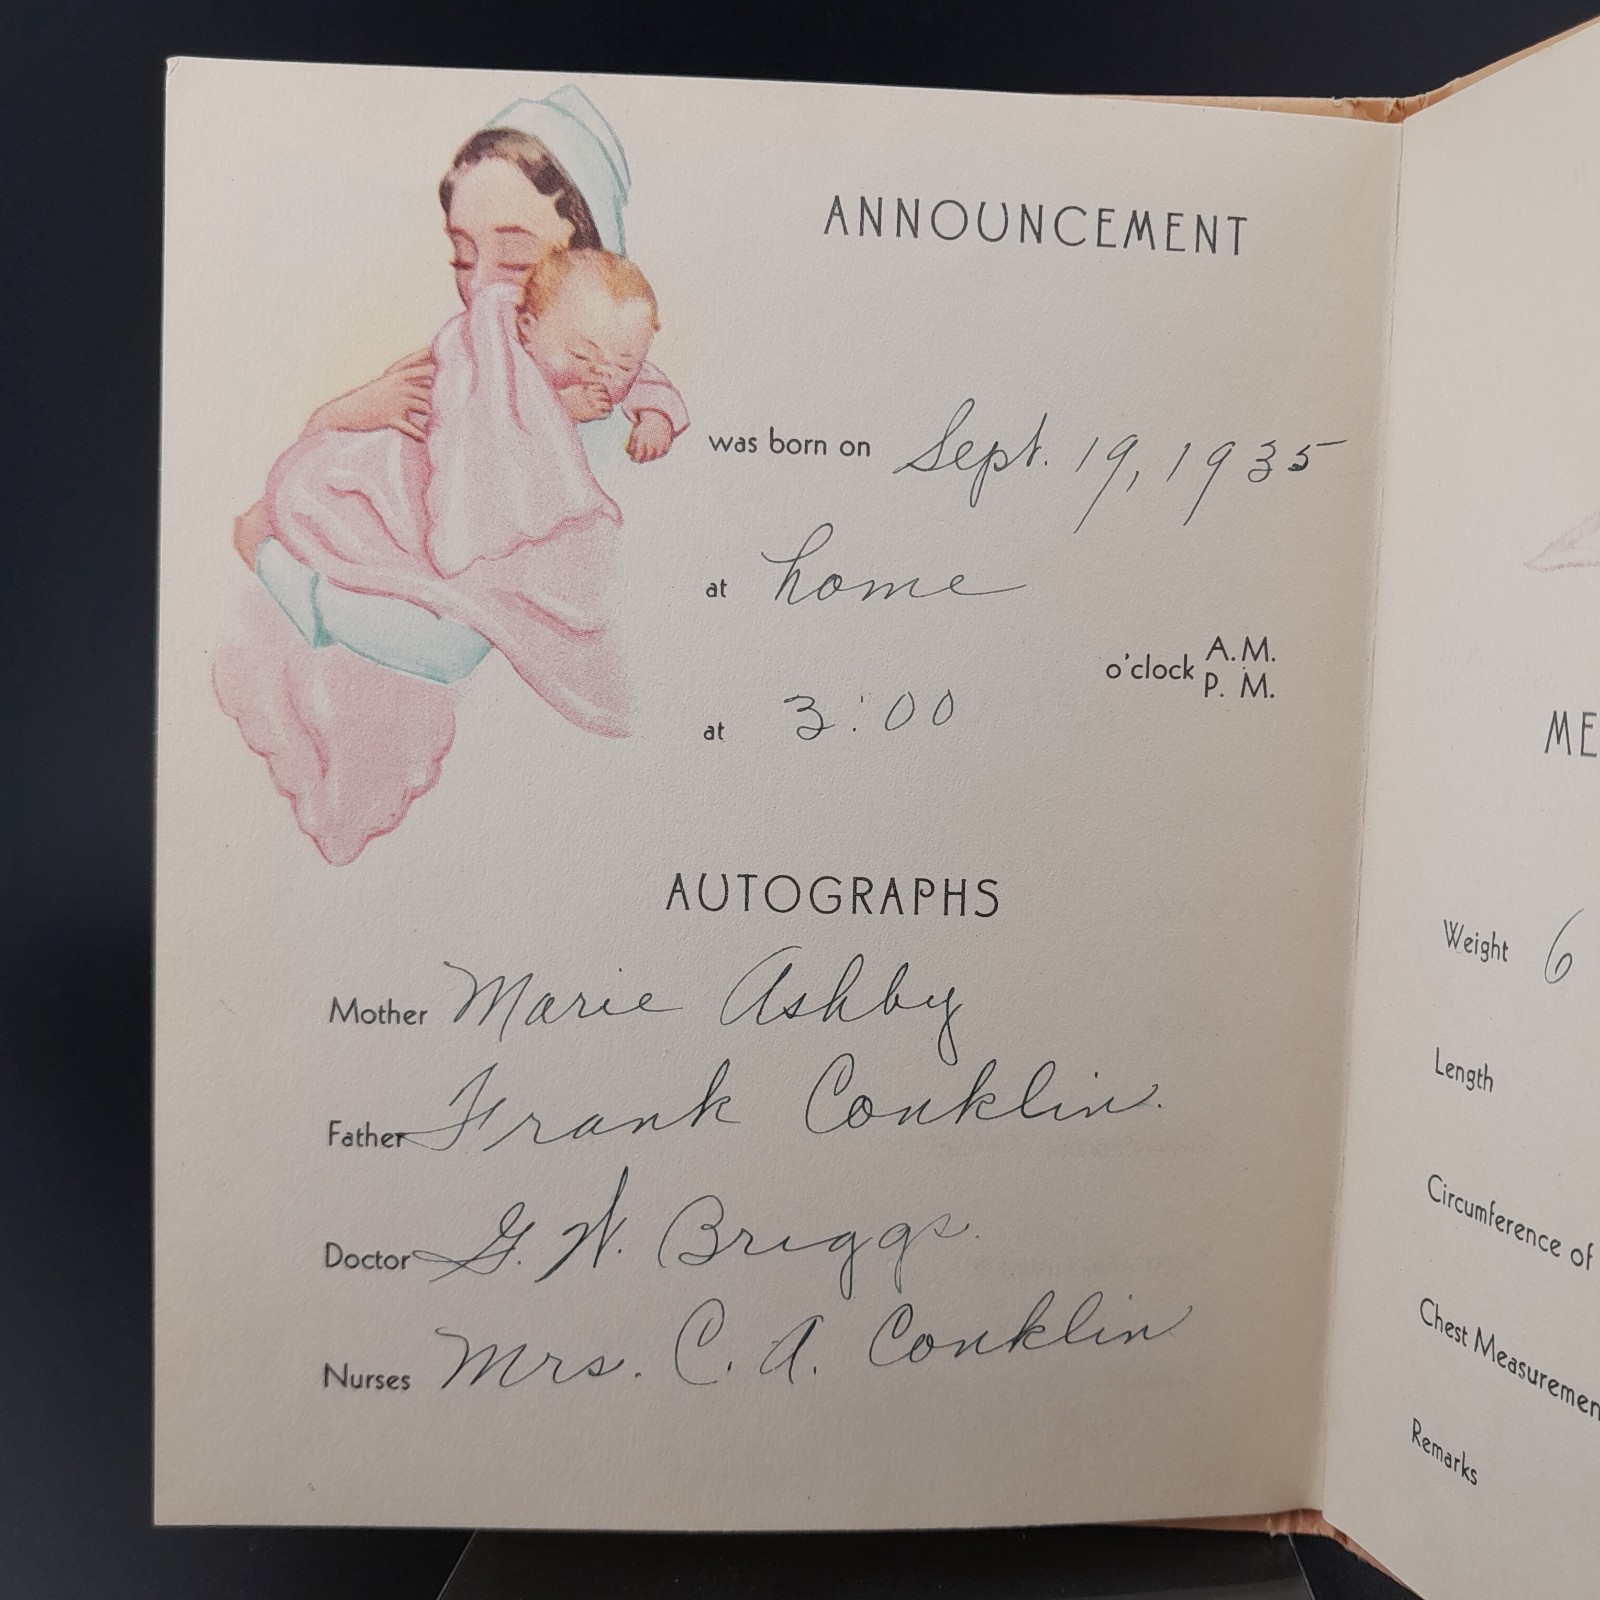 ANNOUNCEMENT
was born on Sept. 19, 1935
at home
o'clock A.M.
P. M.
at 3:00
AUTOGRAPHS
Mother Marie Ashby
Father Frank Conklin.
Doctor G. W. Briggs.
Nurses Mrs. C. A. Conklin
ME
Weight 6
Length
Circumference of
Chest Measuremen
Remarks